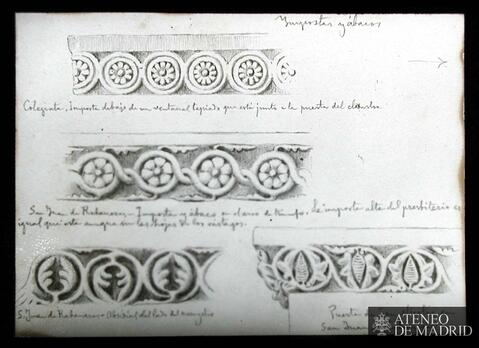 Impostas y ábacos
Colegiata. Imposta debajo de un ventanal tapiado que está junto a la puerta del claustro.
San Juan de Rabanera - Imposta y ábaco en el arco de triunfo. La imposta alta del presbiterio es
igual que esta aunque sin las hojas de los vástagos.
S. Juan de Rabanera - Absidiol del lado del evangelio
Puerta
San Juan
ATENEO
DE MADRID